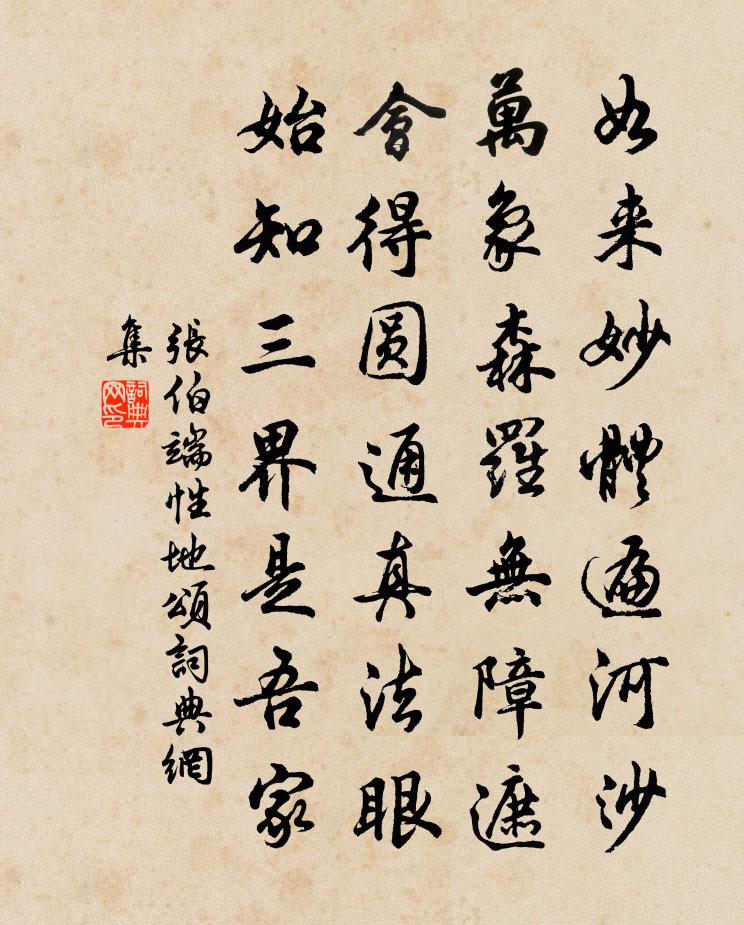 如来妙體遍河沙
萬象森羅無障遮
會得圓通真法眼
始知三界是吾家
張伯端性地頌詞典網
集
詞典网印